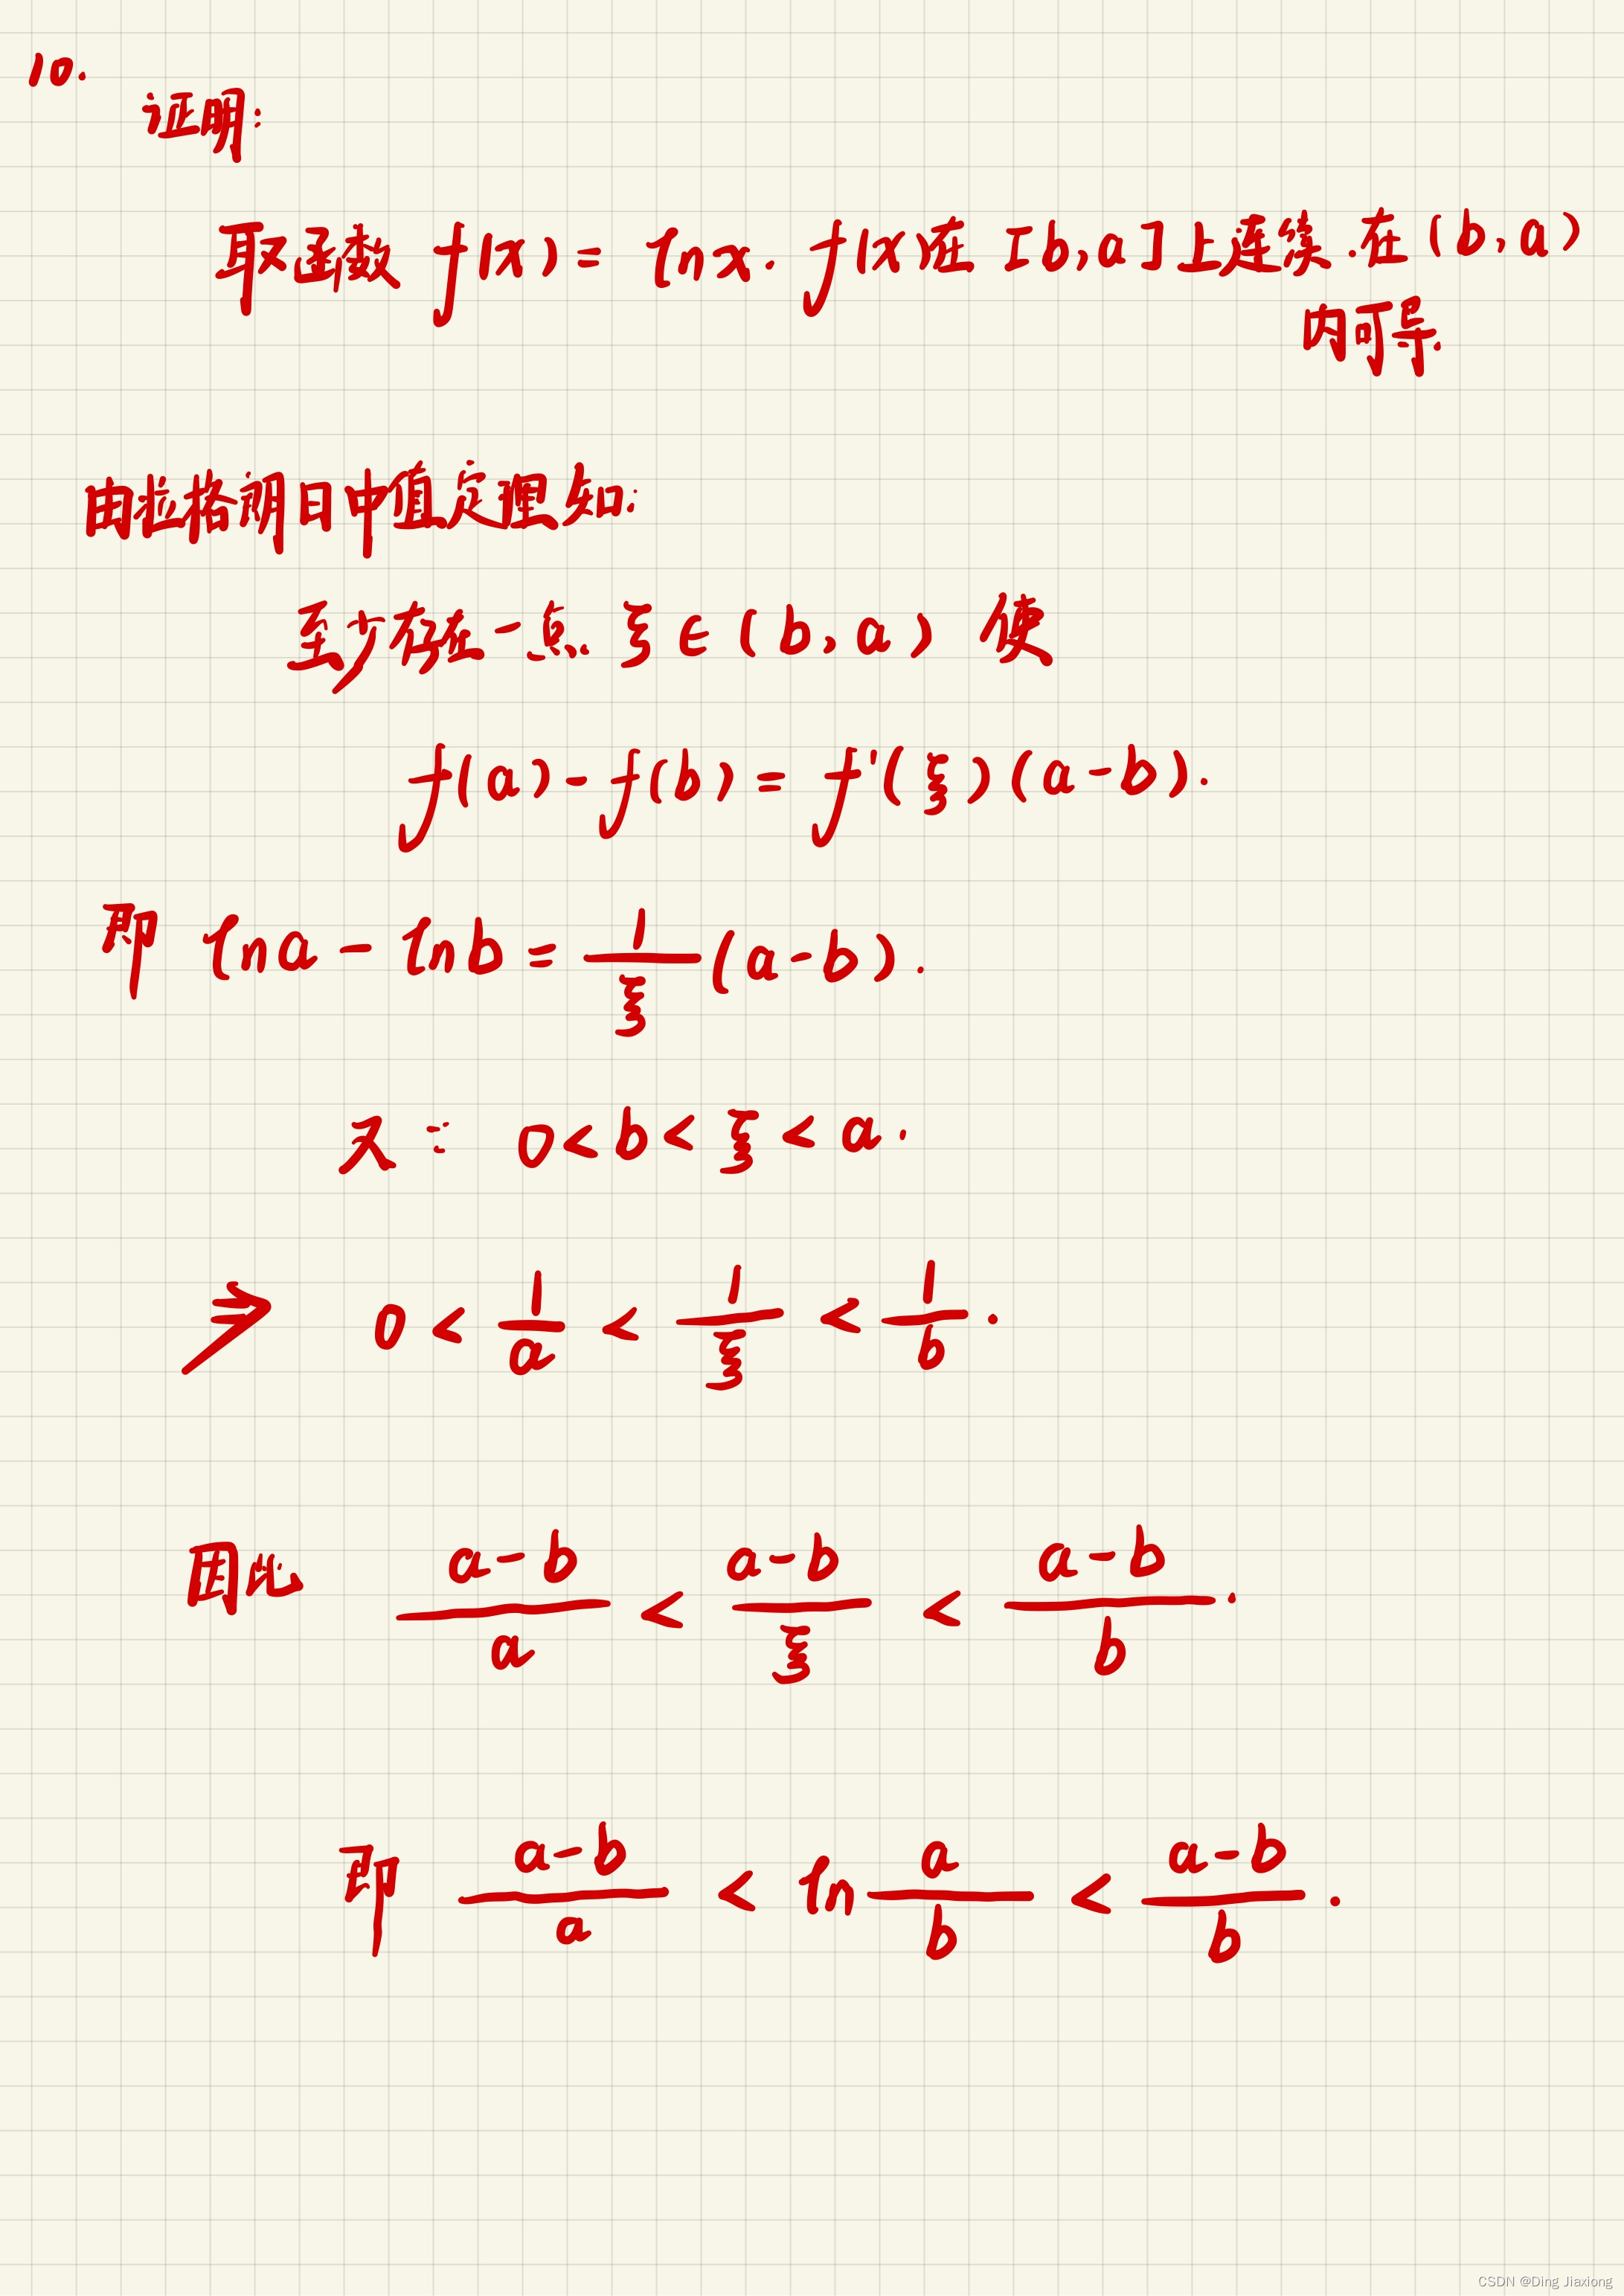 10.
证明:
取函数 f(x) = lnx. f(x)在 [b,a]上连续.在(b,a)
内可导.
由拉格朗日中值定理知:
至少存在一点 ξ∈(b,a) 使
f(a)-f(b)=f'(ξ)(a-b).
即 lna - lnb = \frac{1}{ξ}(a-b).
又∵ 0<b<ξ<a.
⇒ 0 < \frac{1}{a} < \frac{1}{ξ} < \frac{1}{b}.
因此 \frac{a-b}{a} < \frac{a-b}{ξ} < \frac{a-b}{b}.
即 \frac{a-b}{a} < ln\frac{a}{b} < \frac{a-b}{b}.
CSDN @Ding Jiaxiong